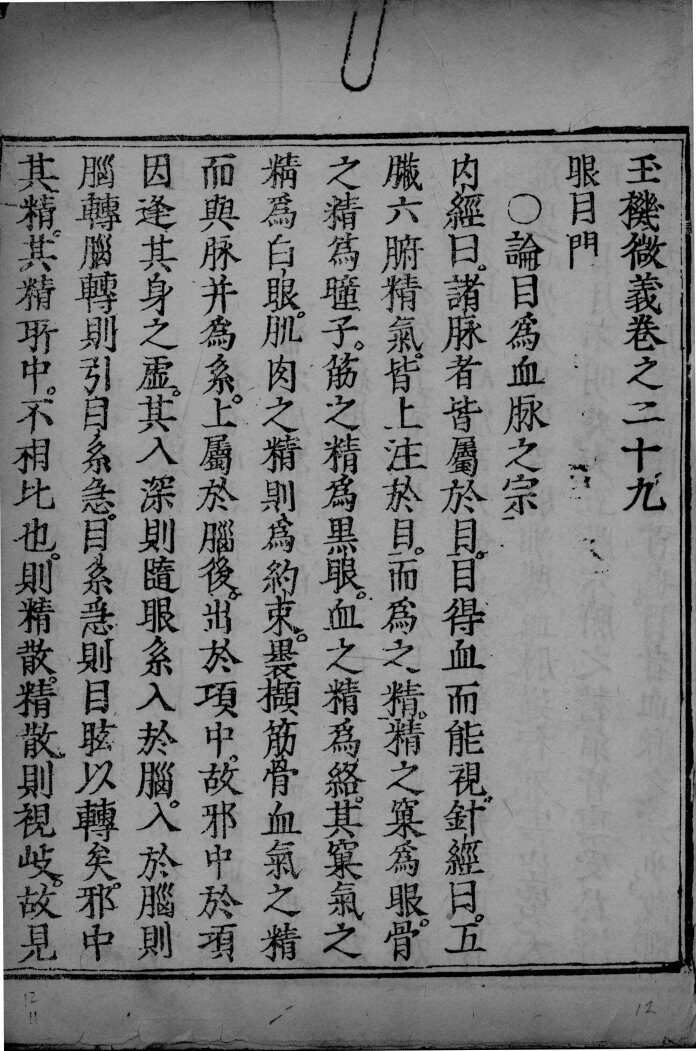 玉機微義卷之二十九
眼目門
○論目為血脉之宗
内經曰。諸脉者皆屬於目。目得血而能視。針經曰。五
臟六腑精氣。皆上注於目。而為之精。精之窠為眼。骨
之精為瞳子。筋之精為黒眼。血之精為絡。其窠氣之
精為白眼。肌肉之精則為約束。裹擷筋骨血氣之精
而與脉并為系。上屬於腦後。出於項中。故邪中於項
因逢其身之虛。其入深則隨眼系入於腦。入於腦則
腦轉腦轉則引目系急。目系急則目眩以轉矣。邪中
其精。其精所中。不相比也。則精散。精散則視岐。故見
12
11
12